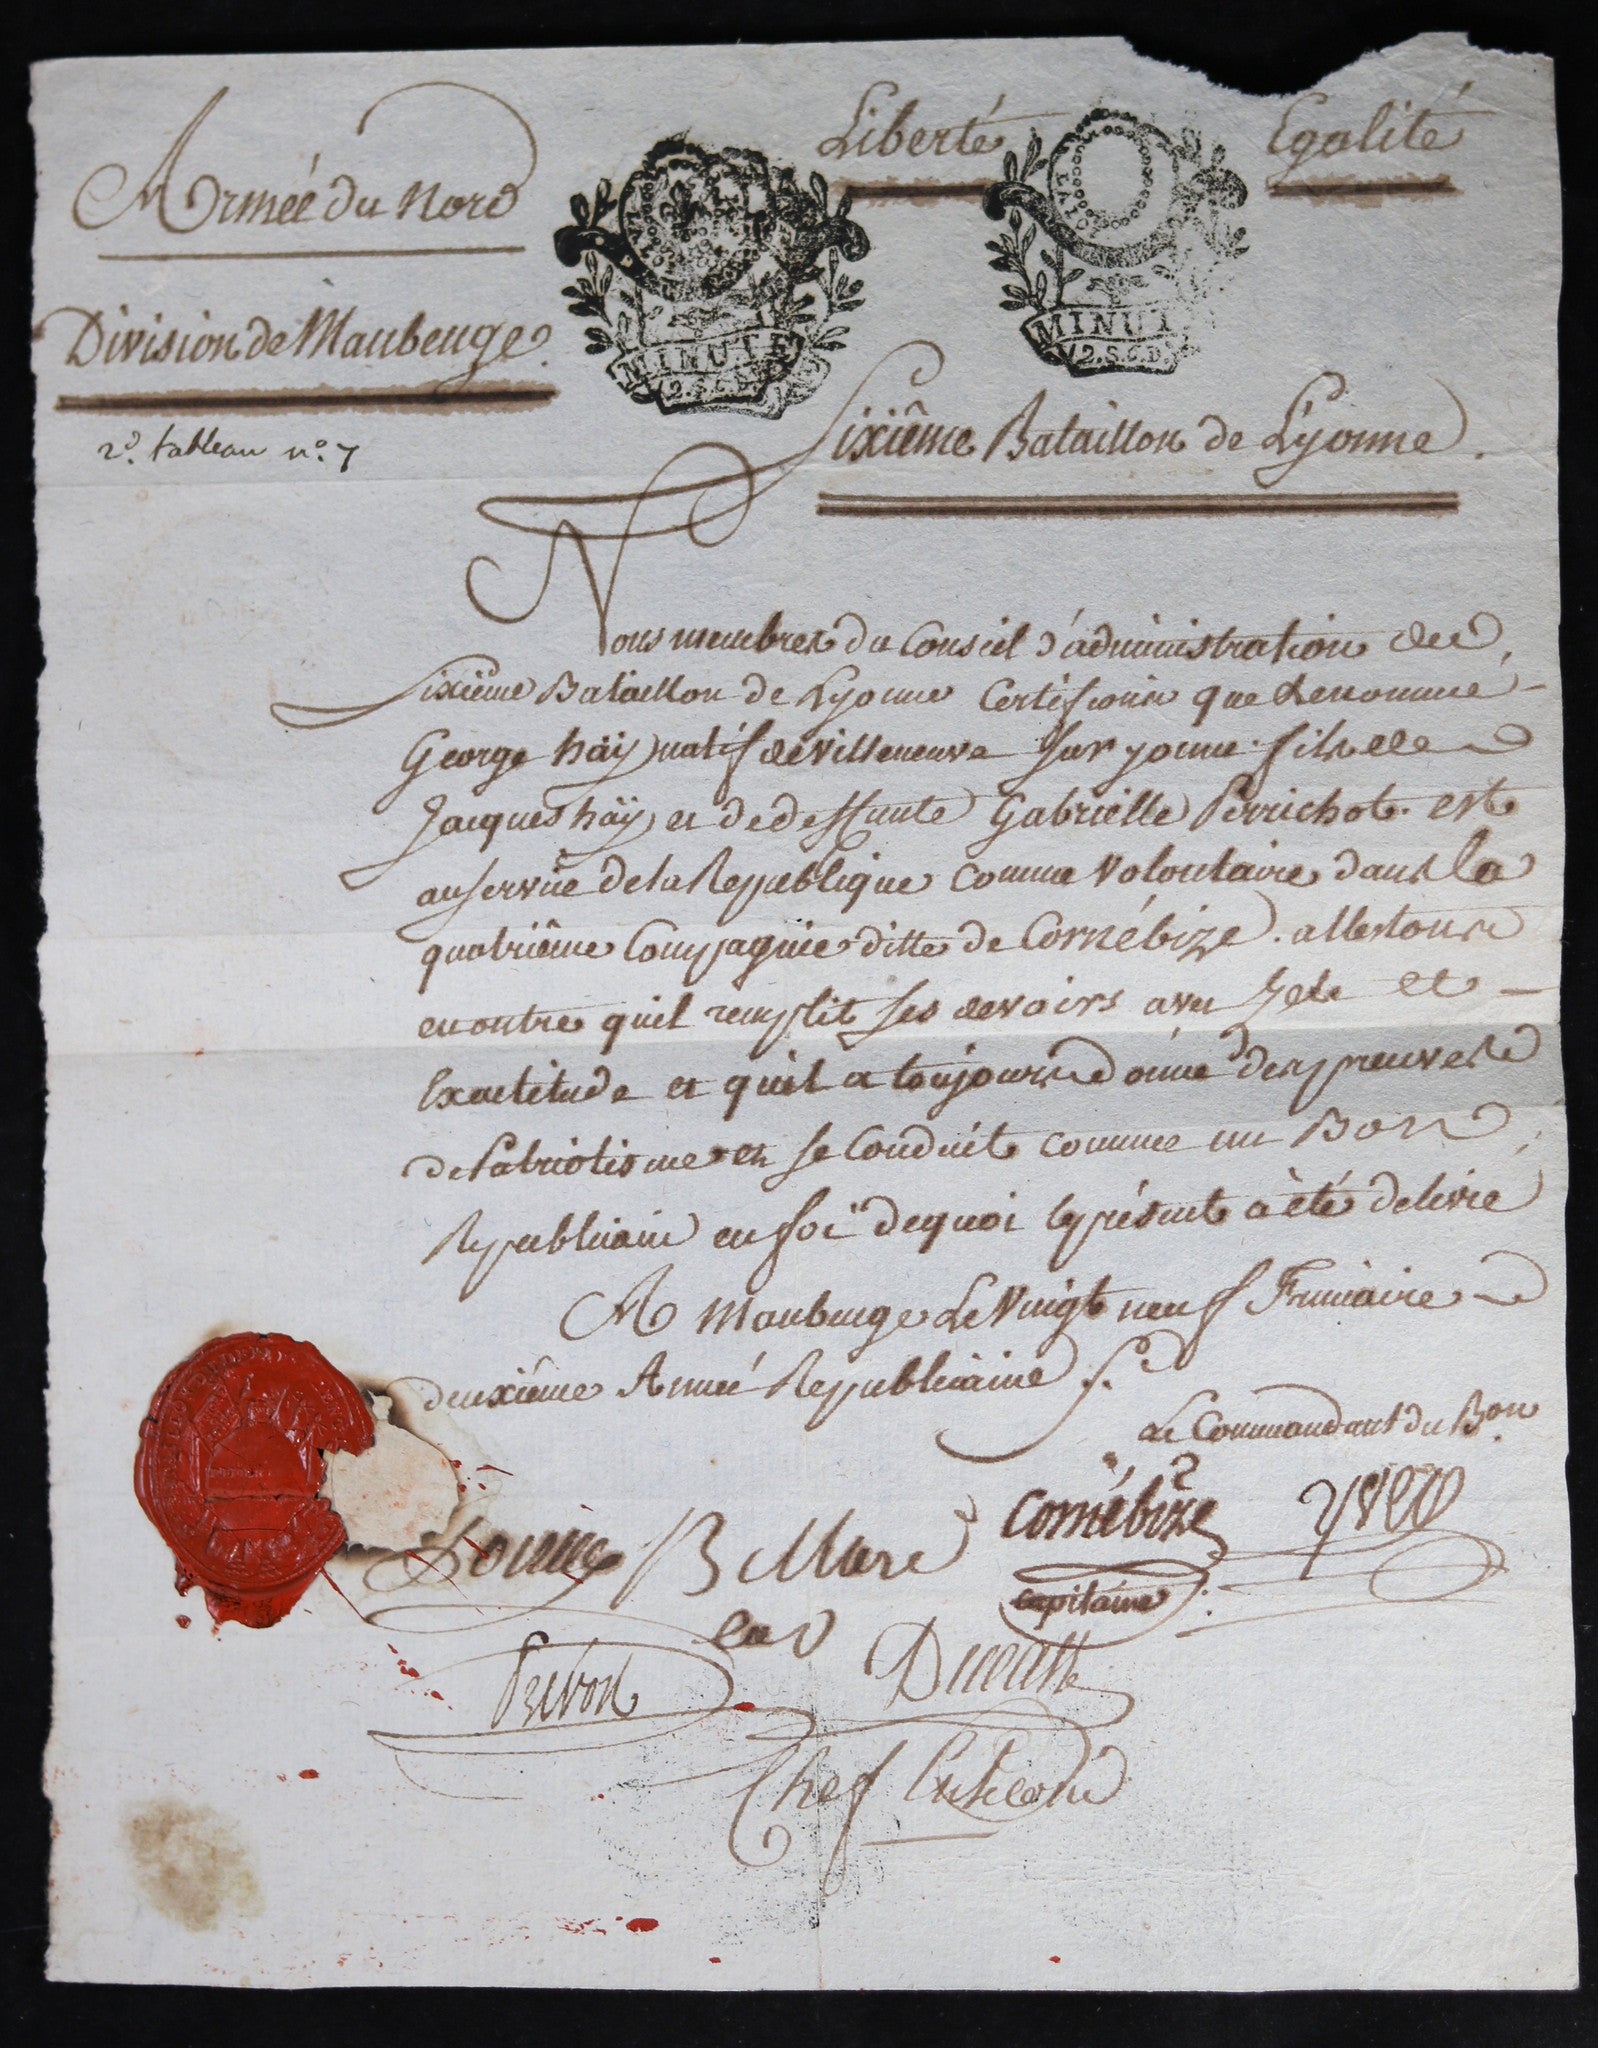 Armée du Nord
Liberté Egalité
Division de Maubeuge.
LA LOI
MINUTE
12.S.6.D.
LA LOI
MINUT
12.S.6.D.
2.d tableau n.o 7
Sixiême Bataillon de L'yonne.
Nous membres du Conseil d'administration du
Sixiême Bataillon de L'yonne Certifions que Lenommé
George häy natif de villeneuve Sur yonne. fils de
Jacques häy et de deffunte Gabrielle Perrichot. est
au service de la Republique comme volontaire dans la
quatriême Compagnie ditte de Cornébize. attestons
en outre quil remplit Ses devoirs avec Zele et
Exactitude et quil a toujours donné des preuves
de Patriotisme et se Conduit comme un Bon
Republicain en foi dequoi le présent à été delivré
A Maubeuge Le Vingt neuf Frimaire
deuxiême Année Republicaine
Le Commandant du B.on
Cornébize
capitaine
Prevost
Chef